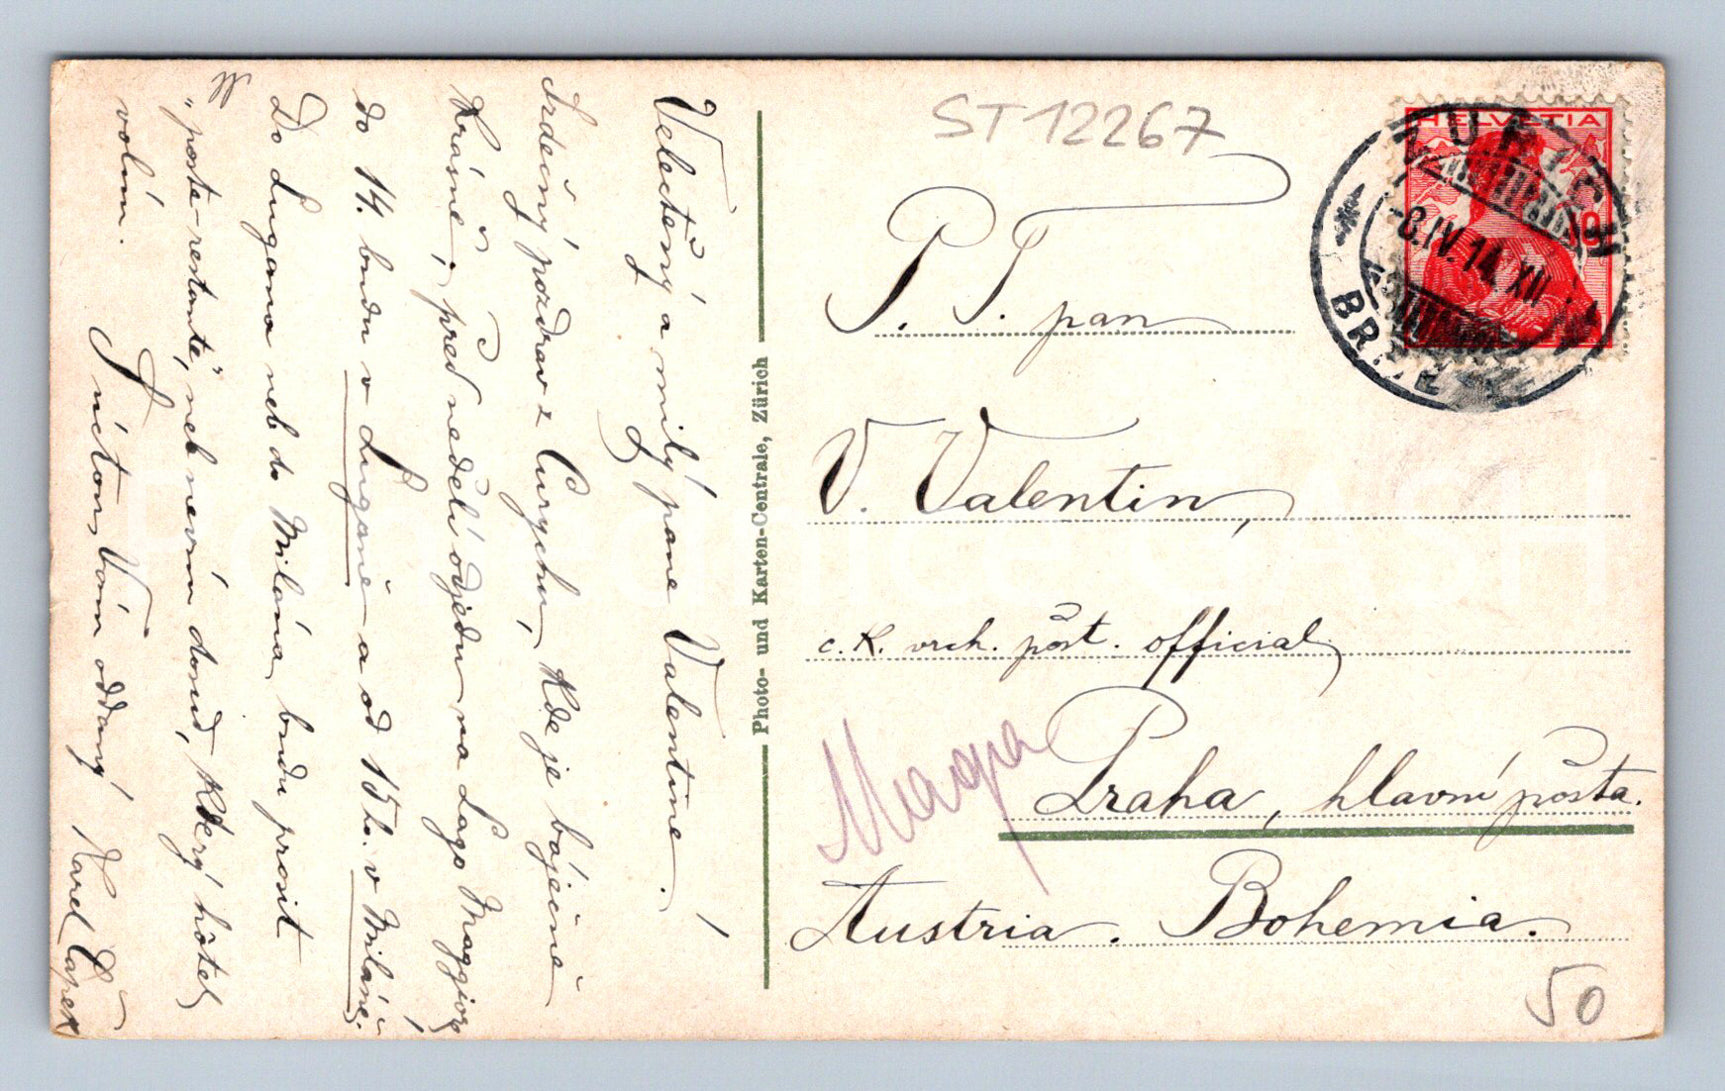 Velectěný a milý pane Valentine!
Srdečný pozdrav z Curychu, kde je báječně
krásně, před nedělí odjedu na Lago Maggiore,
do 14. budu v Luganě a od 15ho. v Miláně.
Do Lugana neb do Milána budu prosit
"poste-restante", neb nevím dosud, který hôtel
volím.
S úctou Vám oddaný Karel Čapek
Photo- und Karten-Centrale, Zürich
ST 12267
HELVETIA
10
ZÜRICH
-8.IV.14.XII
P. T. pan
V. Valentin,
c. k. vrch. pošt. official
Praha, hlavní pošta.
Austria. Bohemia.
50